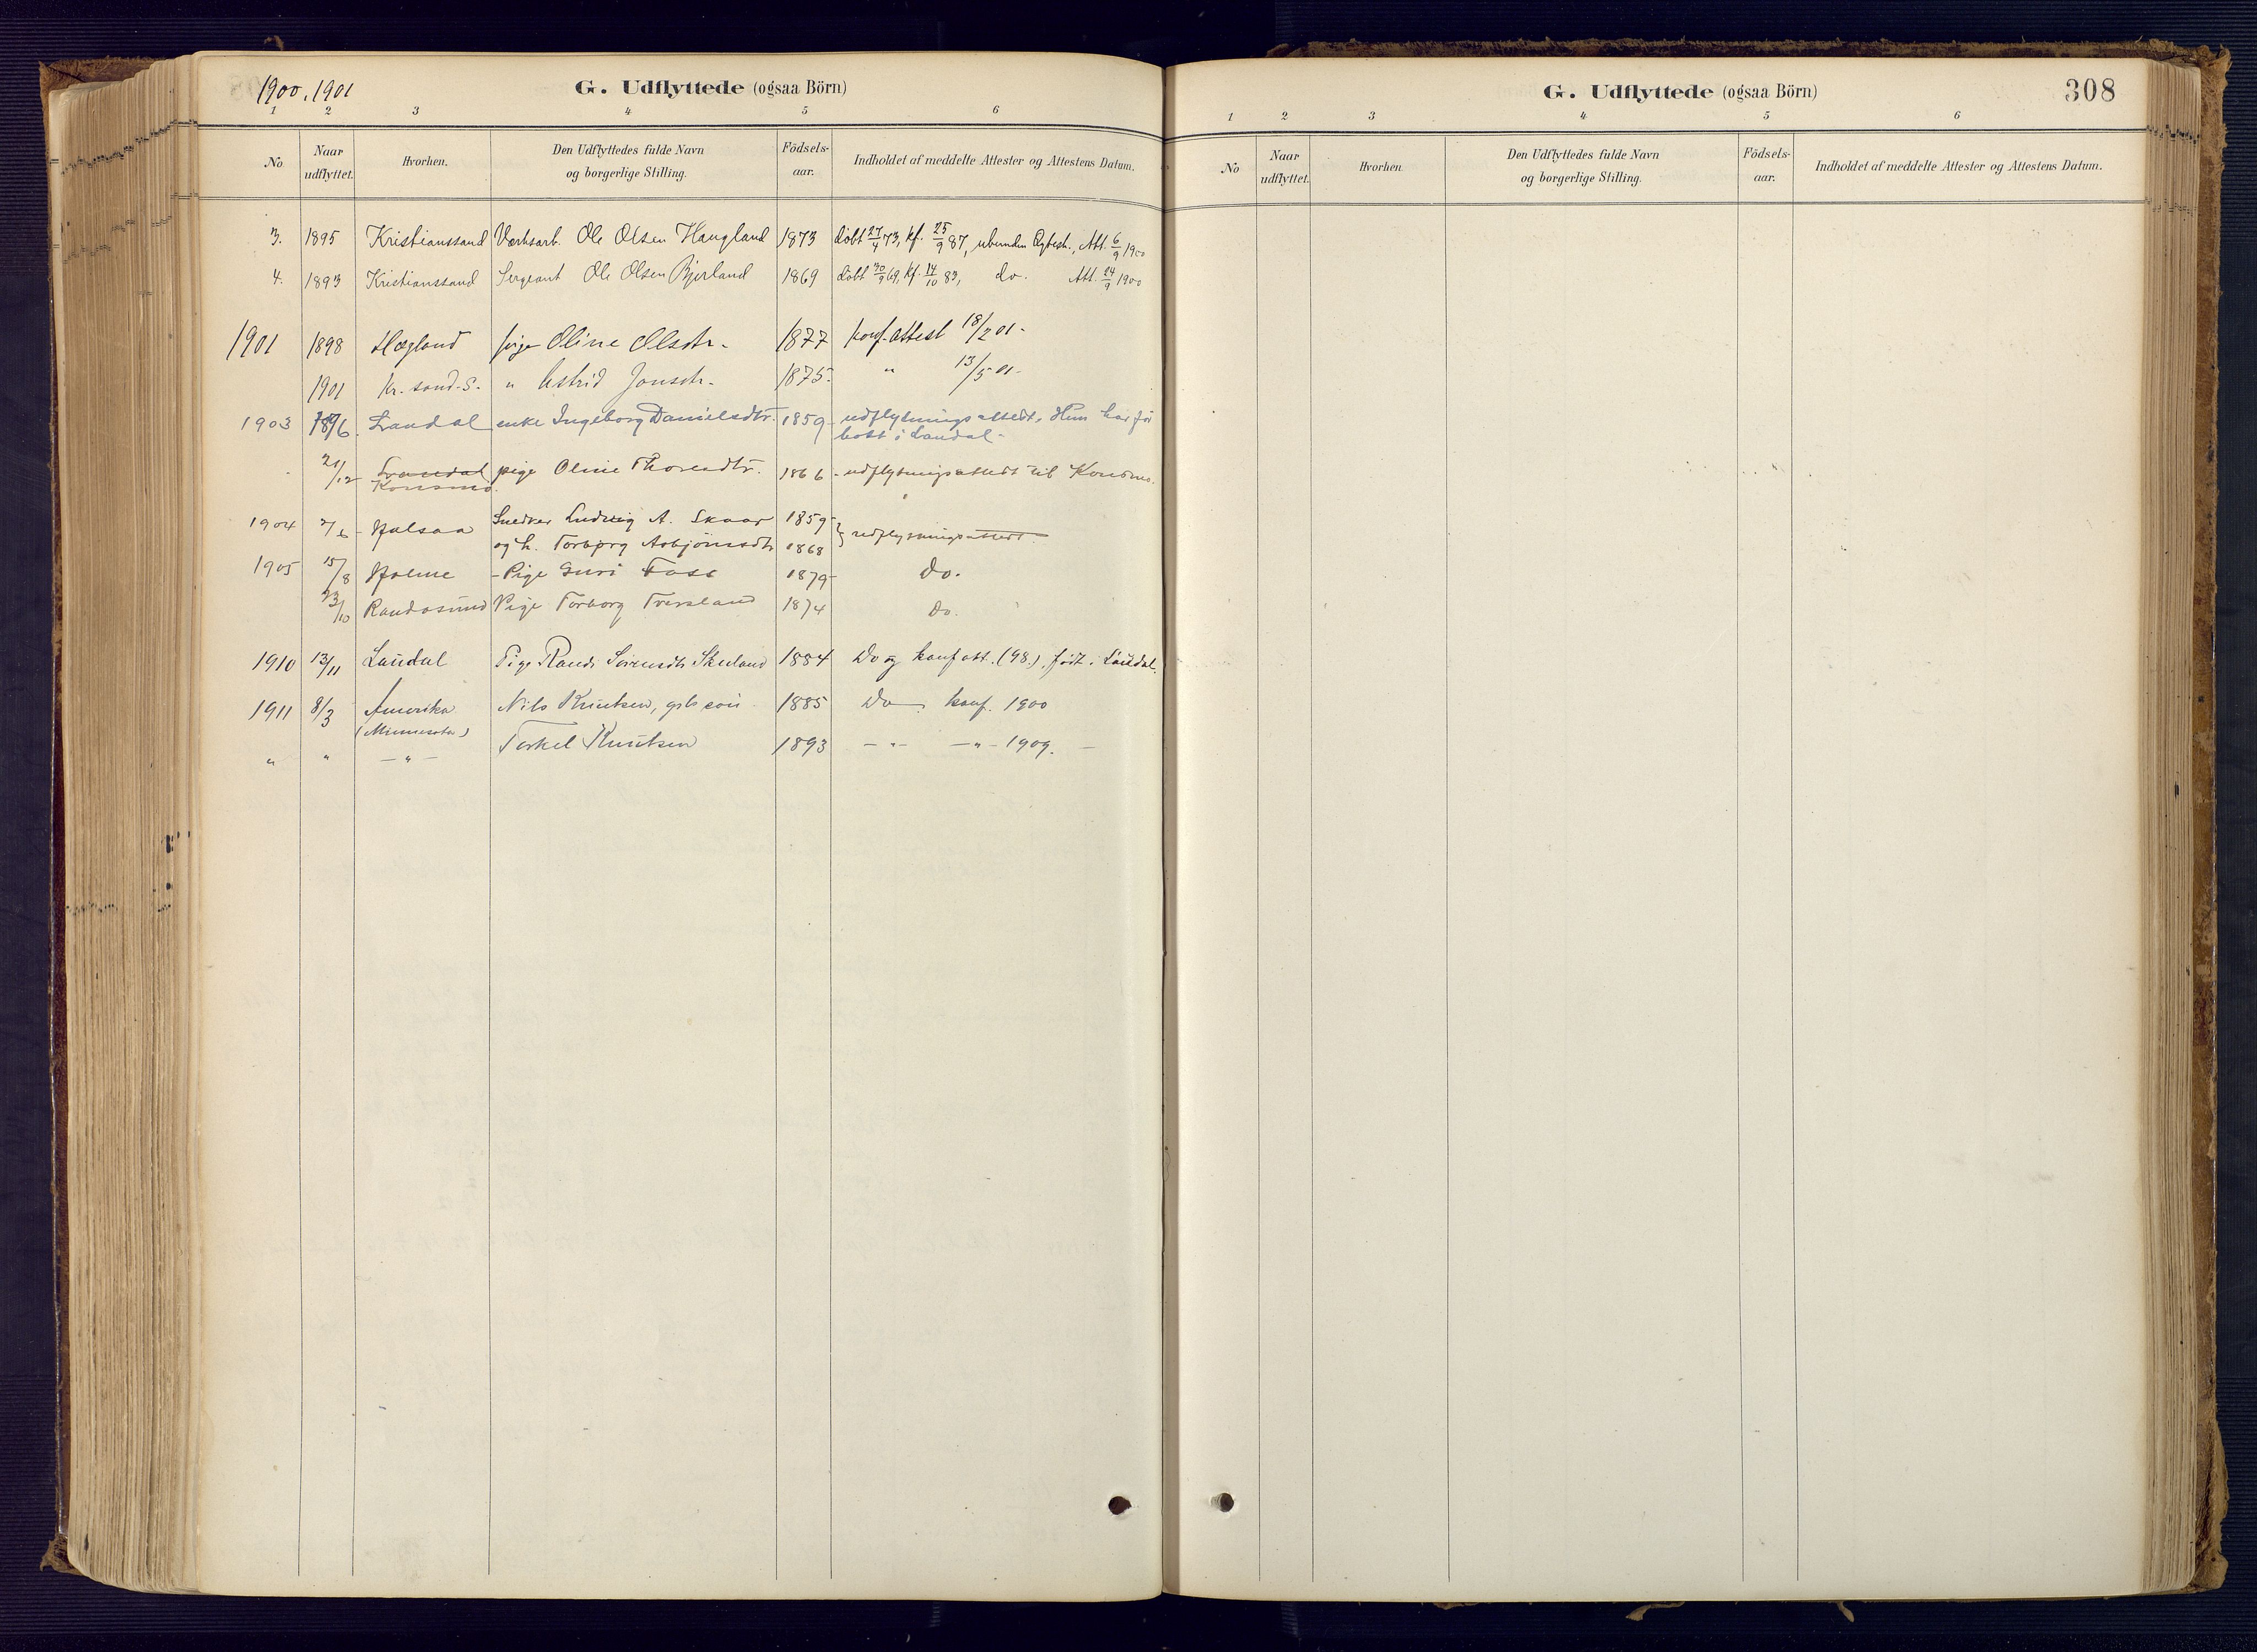 1900, 1901
G. Udflyttede (ogsaa Börn)
1 2 3 4 5 6
No Naar udflyttet. Hvorhen. Den Udflyttedes fulde Navn og borgerlige Stilling. Födsels-aar. Indholdet af meddelte Attester og Attestens Datum.
3. 1895 Kristianssand Værksarb. Ole Olsen Haugland 1873 Döbt 27/4 73, kf. 25/9 87, Att. 6/9 1900
4. 1893 Kristianssand Sergeant Ole Olsen Bjerland 1869 Döbt 30/9 69, kf. 14/10 83, do. Att. 24/9 1900
1901 1898 Hægland pige Oline Olsdtr. 1877 konf. attest 18/2 01.
1901 Kr.sand.S. " Astrid Jonsdtr. 1875. " 13/5 01.
1903 Laudal enke Ingeborg Danielsdtr. 1859 - udflytningsattest. Hun har før
bott i Laudal -
21/12 Laudal pige Oline Thorsdtr. 1866 - udflytningsattest til Konsmo.
Konsmo.
1904 2/6 - Halsaa Snedker Ludvig A. Skaar 1859 } udflytningsattest
og h. Torbjørg Asbjörnsdtr 1868
1905 15/8 Holme - Pige Guri Foss 1879 - Do.
23/10 Randøsund Pige Torborg Tveraland 1874 Do.
1910 13/11 Laudal Pige Randi Sörensdtr Skuland 1884 Do og konf att. (98.), født i Laudal.
1911 8/3 Amerika Nils Knutsen, grbs.søn 1885 Do konf. 1900
(Minnesota)
" " - " - Torkel Knutsen 1893 - " - - " - 1909. -
G. Udflyttede (ogsaa Börn)
308
1 2 3 4 5 6
No Naar udflyttet. Hvorhen. Den Udflyttedes fulde Navn og borgerlige Stilling. Födsels-aar. Indholdet af meddelte Attester og Attestens Datum.